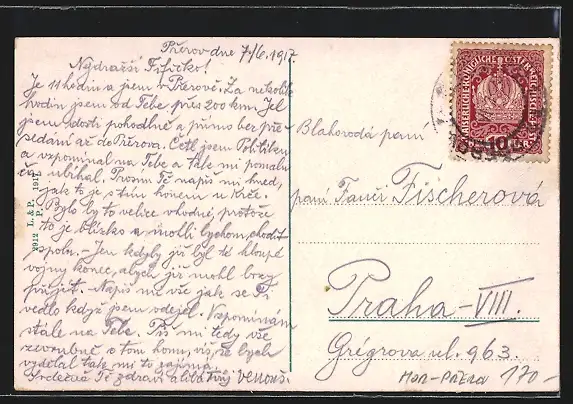 Přerov dne 7/6. 1917
Nejdražší Fifričko!
Je 11 hodin a jsem v Přerově. Za několik
hodin jsem od Tebe přes 200 km. Jel
jsem dosti pohodlně a přímo bez pře-
sedání až do Přerova. Četl jsem Politiku
a vzpomínal na Tebe a tak mi pomalu
čas ubíhal. Prosím Tě napiš mi hned,
jak to je s tím koněm u Krče.
Bylo by to velice vhodné, protože
to je blízko a mohli bychom chodit
spolu. – Jen kdyby již byl té hloupé
vojny konec, abych již mohl brzy
přijet. Napiš mi vše jak se Ti
vedlo když jsem odejel. Vzpomínám
stále na Tebe. Piš mi tedy vše
zevrubně o tom, víš, že bych
vyděl tak mi to zajímá.
Srdečně Tě zdraví a líbá Tvůj Venouš.
2912 L. & P. 1917
P.
Blahorodá paní
paní Fischerová
Praha-VIII.
Grégrova ul. 963.
KAISERLICHE KÖNIGLICHE ÖSTERREICHISCHE POST
10
MOR-PŘEROV 170-